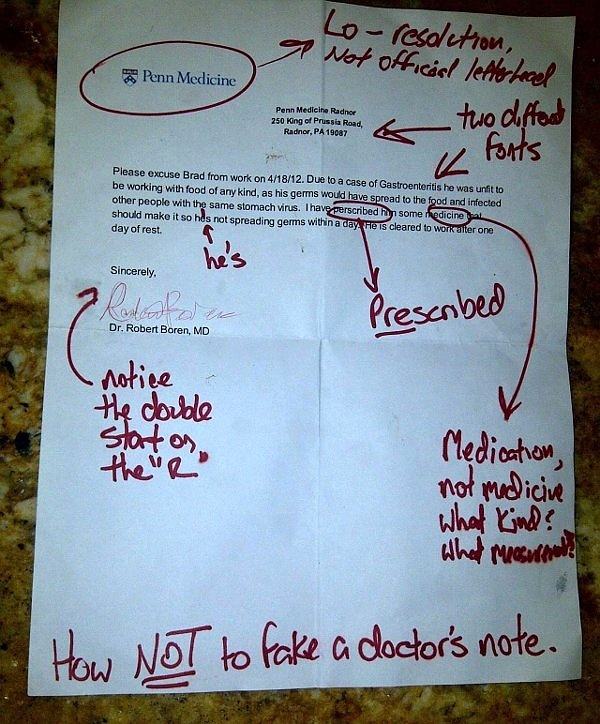 Lo-resolution,
Not official letterhead
Penn Medicine
Penn Medicine Radnor
250 King of Prussia Road,
Radnor, PA 19087
two different
fonts
Please excuse Brad from work on 4/18/12. Due to a case of Gastroenteritis he was unfit to
be working with food of any kind, as his germs would have spread to the food and infected
other people with the same stomach virus. I have perscribed him some medicine that
should make it so hes not spreading germs within a day. He is cleared to work after one
day of rest.
he's
Prescribed
Sincerely,
Dr. Robert Boren, MD
notice
the double
start on
the "R"
Medication,
not medicine
what kind?
what measurement?
How NOT to fake a doctor's note.